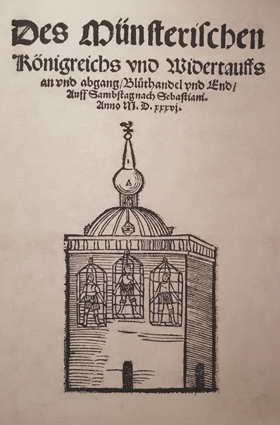 Des Münsterischen
Königreichs vnd Widertauffs
an vnd abgang/Blůthandel vnd End/
Auff Sambstag nach Sebastiani.
Anno M. D. xxxvj.